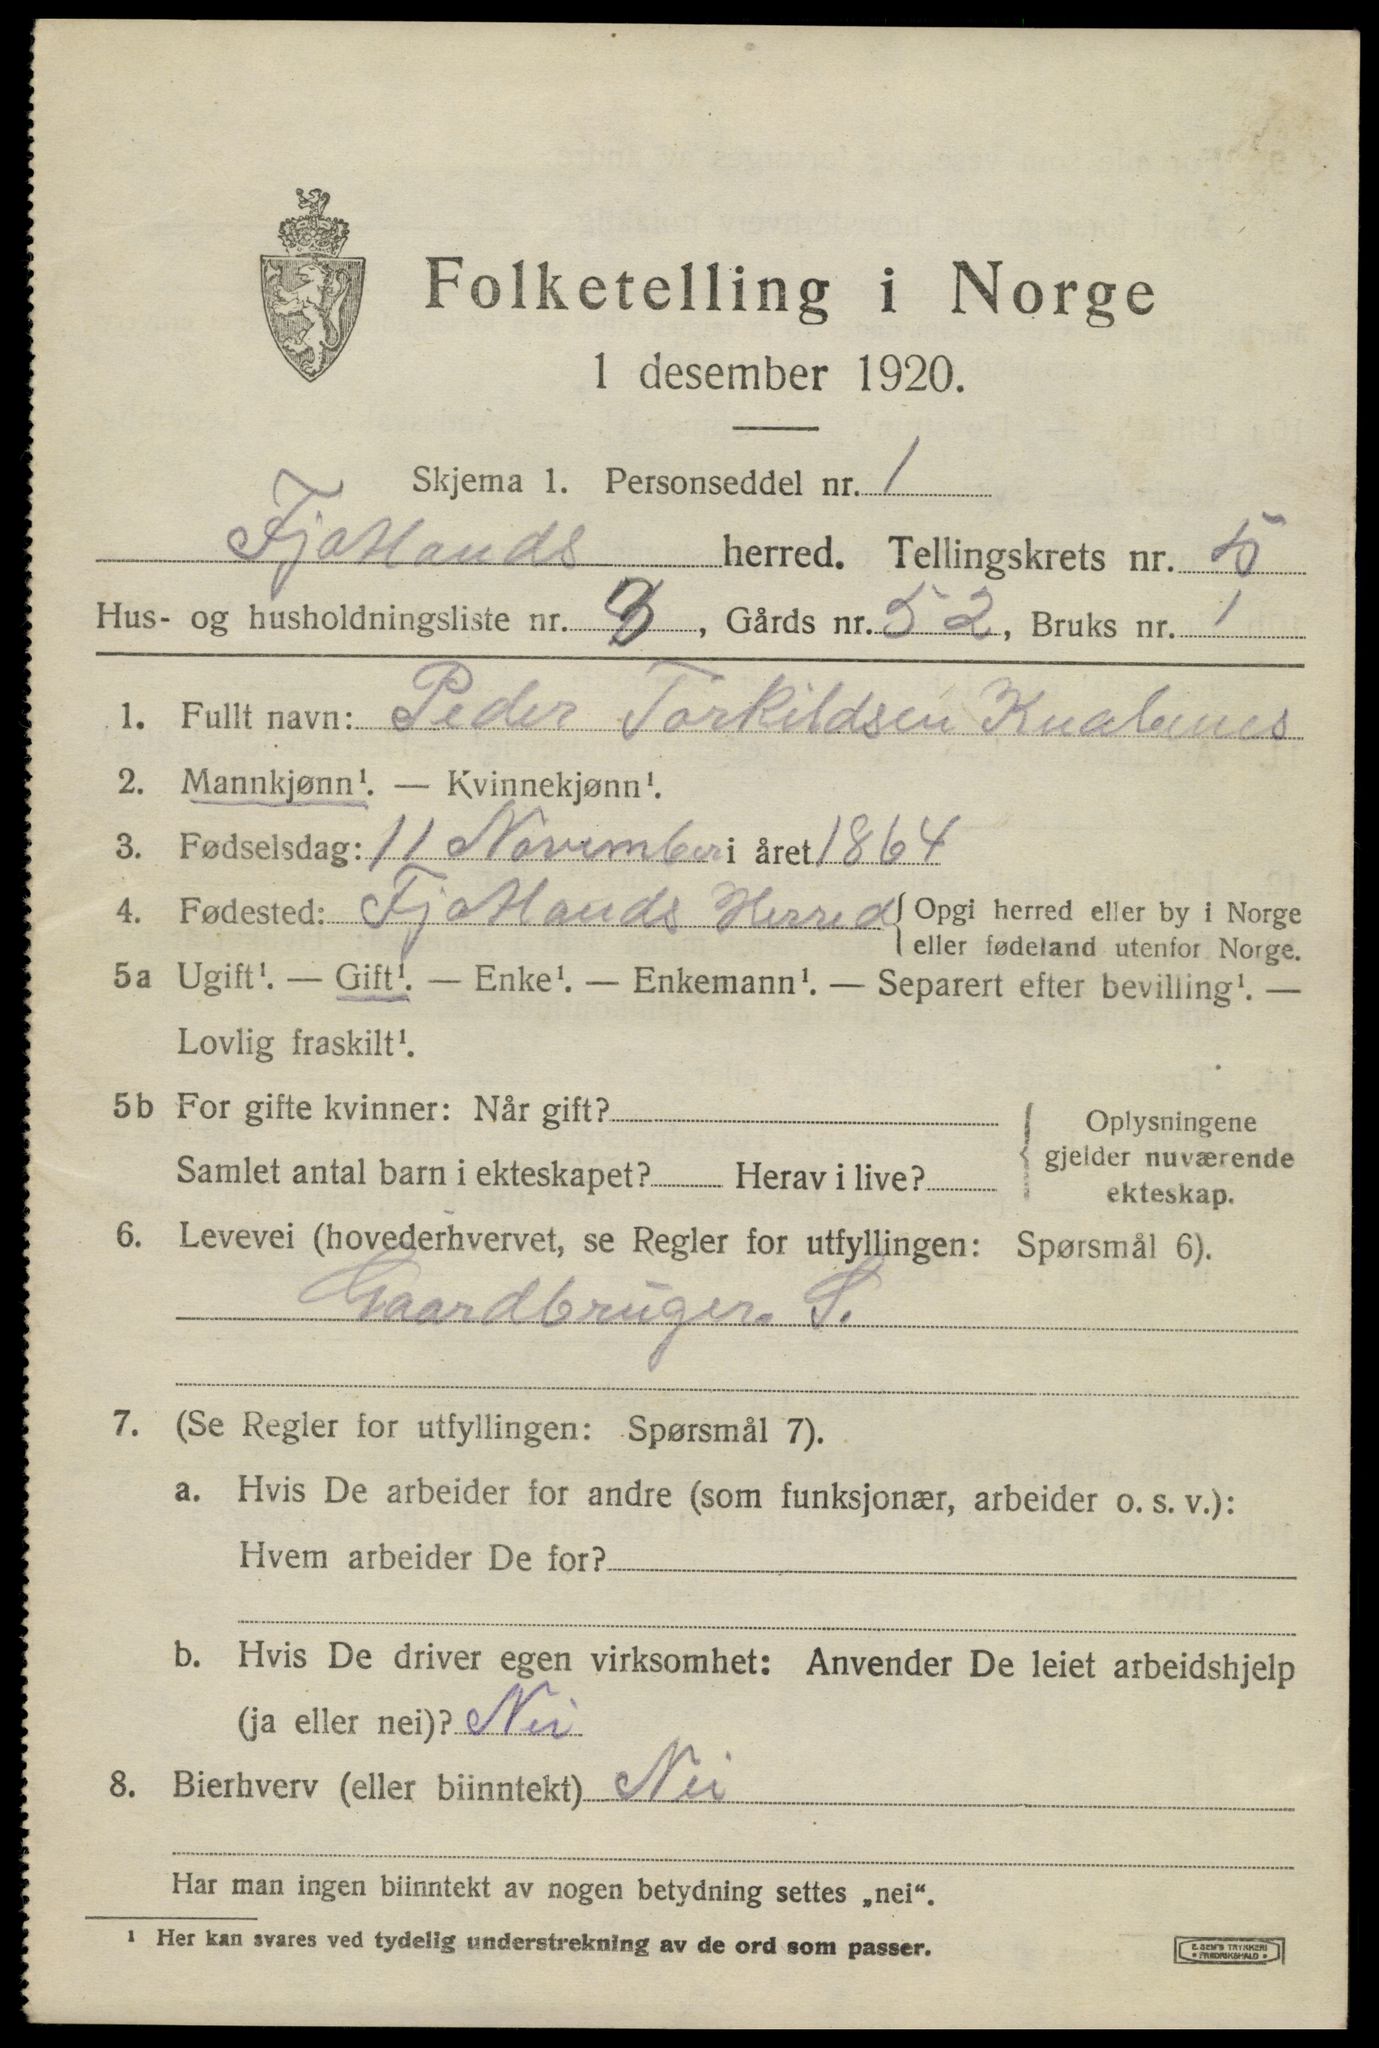 Folketelling i Norge
1 desember 1920.
Skjema 1. Personseddel nr. 1
Fjotlands herred. Tellingskrets nr. 5
Hus- og husholdningsliste nr. 3, Gårds nr. 52, Bruks nr. 1
1. Fullt navn: Peder Torkildsen Knabenes
2. Mannkjønn¹. — Kvinnekjønn¹.
3. Fødselsdag: 11 November i året 1864
4. Fødested: Fjotlands Herred { Opgi herred eller by i Norge
eller fødeland utenfor Norge.
5a Ugift¹. — Gift¹. — Enke¹. — Enkemann¹. — Separert efter bevilling¹. —
Lovlig fraskilt¹.
5b For gifte kvinner: Når gift?
Samlet antal barn i ekteskapet? Herav i live?
Oplysningene
gjelder nuværende
ekteskap.
6. Levevei (hovederhvervet, se Regler for utfyllingen: Spørsmål 6).
Gaardbruger. S.
7. (Se Regler for utfyllingen: Spørsmål 7).
a. Hvis De arbeider for andre (som funksjonær, arbeider o. s. v.):
Hvem arbeider De for?
b. Hvis De driver egen virksomhet: Anvender De leiet arbeidshjelp
(ja eller nei)? Nei
8. Bierhverv (eller biinntekt) Nei
Har man ingen biinntekt av nogen betydning settes „nei“.
¹ Her kan svares ved tydelig understrekning av de ord som passer.
E. SEM'S TRYKKERI
• FREDRIKSHALD •